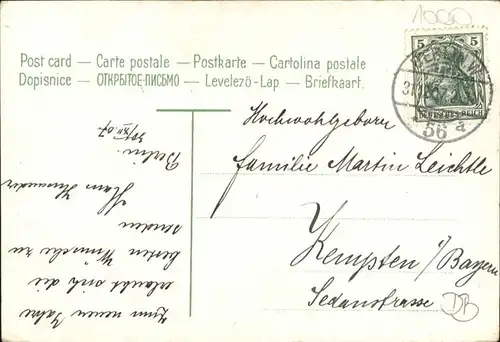 1000
Post card — Carte postale — Postkarte — Cartolina postale
Dopisnice — ОТКРЫТОЕ-ПИСЬМО — Levelező-Lap — Briefkaart.
5 5
DEUTSCHES REICH
56 a
Hochwohlgeboren
Familie Martin Leichtle
Kempten i/Bayern
Sedanstrasse
DB
Zum neuen Jahre
erlaubt sich die
besten Wünsche zu
senden
Hans
Berlin
XII.07